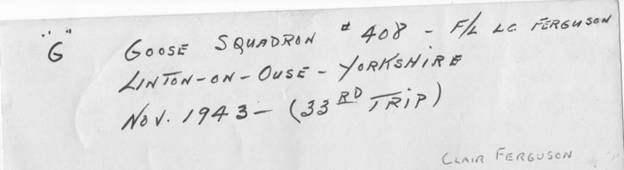 "G" GOOSE SQUADRON # 408 - F/L LC FERGUSON
LINTON-ON-OUSE - YORKSHIRE
NOV. 1943 - (33RD TRIP)
CLAIR FERGUSON